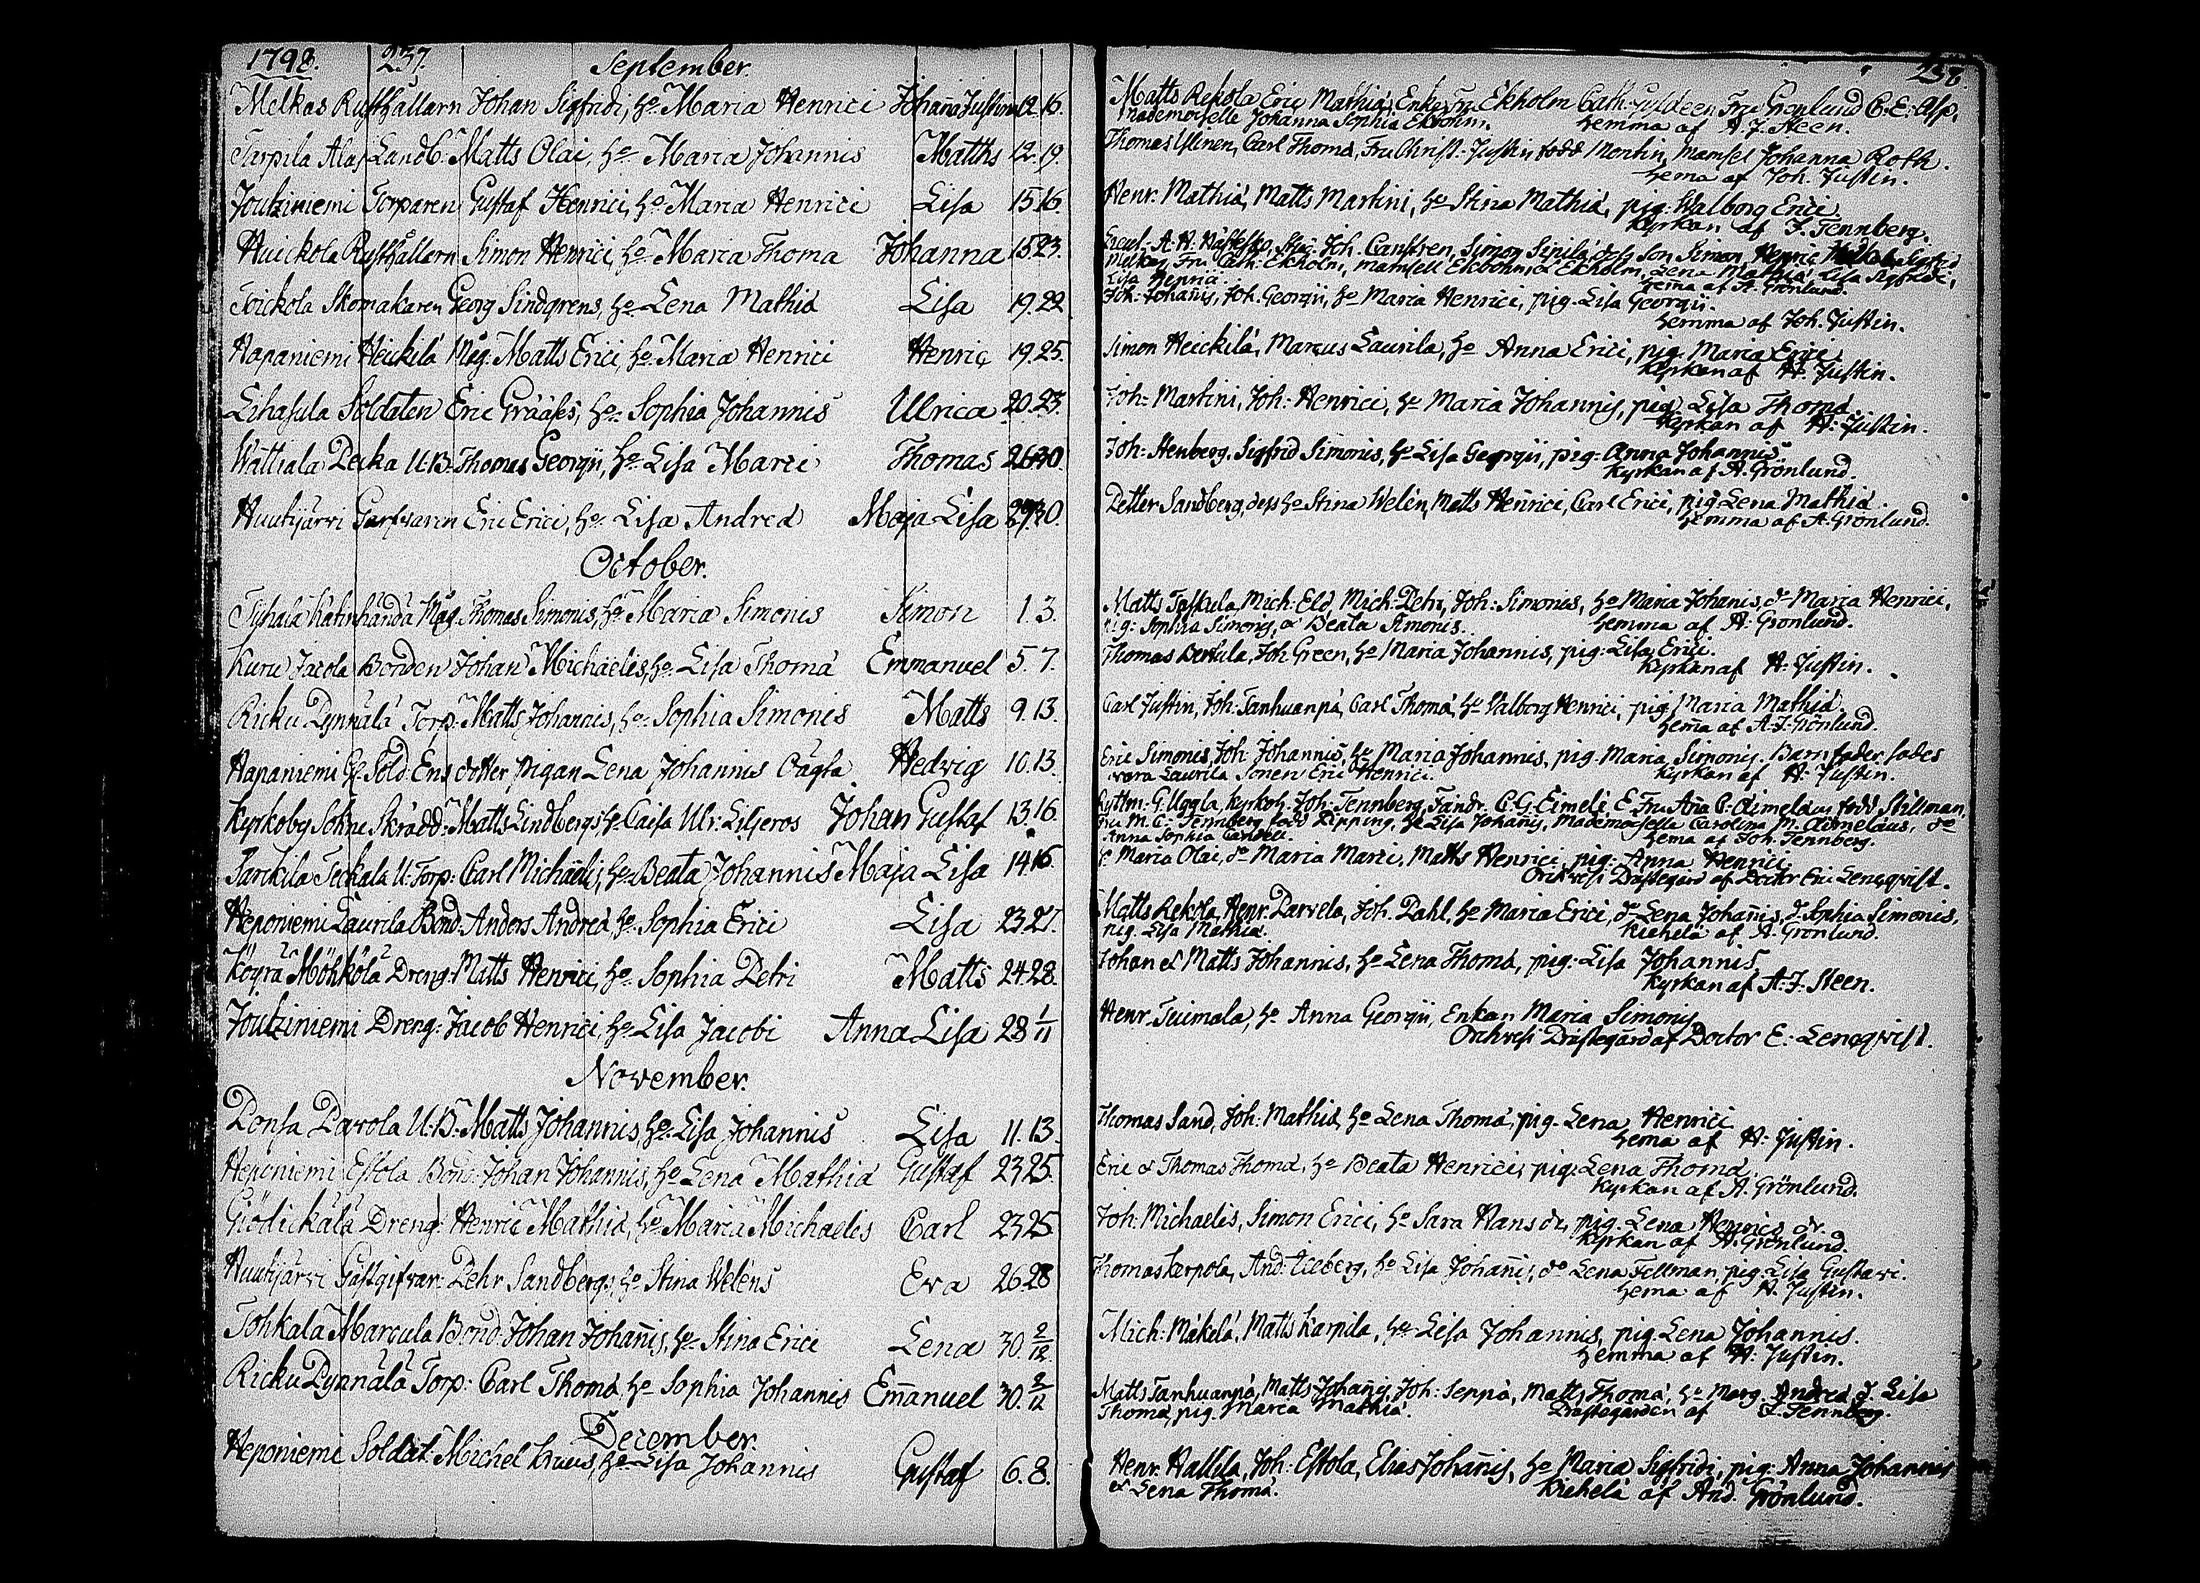 1798. 237. September.
Melkas Rusthållarn Johan Sigfridi, ho Maria Henrici Johana Justina 12. 16.
Tarpila Alas Landb. Matts Olai, ho Maria Johannis Matths 12. 19.
Joutziniemi Torparen Gustaf Henrici, ho Maria Henrici Lisa 15. 16.
Huickola Rusthållarn Simon Henrici, ho Maria Thomæ Johanna 15. 23.
Skomakaren Georg Lindgrens, ho Lena Mathiæ Lisa 19. 22
Hapaniemi Heickilä Måg. Matts Erici, ho Maria Henrici Henric 19. 25.
Lihasula Soldaten Eric Grååfes, ho Sophia Johannis Ulrica 20. 23.
Wättiala U.B. Thomas Georgii, ho Lisa Marci Thomas 26. 30.
Huutijärvi Garfvaren Eric Erici, ho Lisa Andreæ Maja Lisa 27. 30.
October.
Måg. Thomas Simonis, ho Maria Simonis Simon 1. 3.
Kuru Jacola Bonden Johan Michaelis, ho Lisa Thomæ Emmanuel 5. 7.
Ricku Pynnälä Torp: Matts Johannis, ho Sophia Simonis Matts 9. 13.
Hapaniemi Sold. Ens dotter pigan Lena Johannis Oägta Hedvig 10. 13.
Kyrkoby Söhne Skrädd: Matts Lindbergs, ho Caisa Ulr: Liljeros Johan Gustaf 13. 16.
Tarckila Teckala U: Torp: Carl Michaelis, ho Beata Johannis Maja Lisa 14. 16.
Heponiemi Laurila Bond. Anders Andreæ, ho Sophia Erici Lisa 23. 27.
Köyrä Möhkölä Dreng. Matts Henrici, ho Sophia Petri Matts 24. 28.
Joutziniemi Dreng: Jacob Henrici, ho Lisa Jacobi Anna Lisa 28 1/11
November.
Ponsa Pavola U:B: Matts Johannis, ho Lisa Johannis Lisa 11. 13.
Heponiemi Eskola Bond. Johan Johannis, ho Lena Mathiæ Gustaf 23. 25.
Giödickälä Dreng: Henric Mathiæ, ho Maria Michaelis Carl 23. 25
Huutijärvi Gästgifvar: Pehr Sandbergs, ho Stina Weléns Eva 26. 28
Tohkala Marcula Bond: Johan Johañis, ho Stina Erici Lena 30. 2/12.
Ricku Pynnälä Torp: Carl Thomæ, ho Sophia Johannis Emanuel 30. 2/12
December.
Heponiemi Soldat Michel Kruus, ho Lisa Johannis Gustaf 6. 8.
238.
Matts Rekola, Eric Mathiæ, Ekholm Cath: Fru Grönlund C: E: Asp,
Mademoiselle Johanna Sophia Ekbohm. hemma af A. J. Steen.
Thomas Uhinen, Carl Thomæ, Fru Christ. Justin född Montin, Mamsel Johanna Roth.
hema af Joh. Justin.
Henr. Mathiæ, Matts Martini, ho Stina Mathiæ, pig. Walborg Erici.
Kyrkan af J. Tennberg.
Joh. Canstren, Simon Sipilä, dess son Simon, Henric
Melkas, Fru Cath. Ekholm, Mamsell Ekbohm, & Ekholm, Lena Mathiæ, Lisa Sigfridi,
Lisa Henrici. hema af A. Grönlund.
Joh. Johañis, Joh. Georgii, ho Maria Henrici, pig. Lisa Georgii.
hemma af Joh. Justin.
Simon Heickilä, Marcus Laurila, ho Anna Erici, pig. Maria Erici.
Kyrkan af H. Justin.
Joh: Martini, Joh: Henrici, ho Maria Johannis, pig. Lisa Thomæ.
Kyrkan af H: Justin.
Joh: Stenberg, Sigfrid Simonis, ho Lisa Georgii, pig. Anna Johannis.
Kyrkan af A. Grönlund.
Petter Sandberg, dess ho Stina Welén, Matts Henrici, Carl Erici, pig. Lena Mathiæ.
hemma af A. Grönlund.
Matts Taskula, Mich: Eld, Mich: Petri, Joh: Simonis, ho Maria Johanis, do Maria Henrici,
pig: Sophia Simonis, & Beata Simonis. hemma af A: Grönlund.
Thomas Bertula, Joh. Green, ho Maria Johannis, pig: Lisa Erici.
Kyrkan af H: Justin.
Carl Justin, Joh: Tanhuanpä, Carl Thomæ, ho Valborg Henrici, pig. Maria Mathiæ.
hema af A. J. Grönlund.
Eric Simonis, Joh. Johannis, ho Maria Johannis, pig. Maria Simonis. Barnfader sades
vara Laurila Sonen Eric Henrici. Kyrkan af H. Justin.
Ryttm: G. Uggla, Kyrkoh. Joh: Tennberg, C: G: Eimelé, Fru född Stillman,
Fru M. C: Tennberg född Pipping, ho Lisa Johañis, Mademoiselle Carolina M. do
Anna Sophia hema af Joh. Tennberg.
ho Maria Olai, do Maria Marci, Matts Henrici, pig: Anna Henrici.
Orihvesi Prästegård af Doctor Eric Lenqvist.
Matts Rekola, Henr. Parvela, Joh. Dahl, ho Maria Erici, do Lena Johañis, do Sophia Simonis,
pig. Lisa Mathiæ. Kiehelä af A. Grönlund.
Johan & Matts Johannis, ho Lena Thomæ, pig: Lisa Johannis
Kyrkan af A: J. Steen.
Henr. Tuimala, ho Anna Georgii, Enkan Maria Simonis
Orihvesi Prästegård af Doctor E: Lenqvist.
Thomas Sand, Joh: Mathiæ, ho Lena Thomæ, pig. Lena Henrici
hema af H: Justin.
Eric & Thomas Thomæ, ho Beata Henrici, pig: Lena Thomæ.
Kyrkan af A. Grönlund.
Joh: Michaelis, Simon Erici, ho Sara Hans dr, pig. Lena Henrics dr.
Kyrkan af A. Grönlund.
Thomas Kerpola, And: Iceberg, ho Lisa Johañis, do Lena Fellman, pig: Lisa Gustavi.
hema af H. Justin.
Mich: Mäkelä, Matts Karpila, ho Lisa Johannis, pig. Lena Johannis.
hemma af H: Justin.
Matts Tanhuanpä, Matts Johañis, Joh: Seppä, Matts Thomæ, ho Marg. Andreæ, d. Lisa
Thomæ, pig. Maria Mathiæ. Prästegården af J. Tennberg.
Henr. Hallila, Joh: Eskola, Elias Johañis, ho Maria Sigfridi, pig: Anna Johannis
& Lena Thomæ. Kiehelä af And. Grönlund.